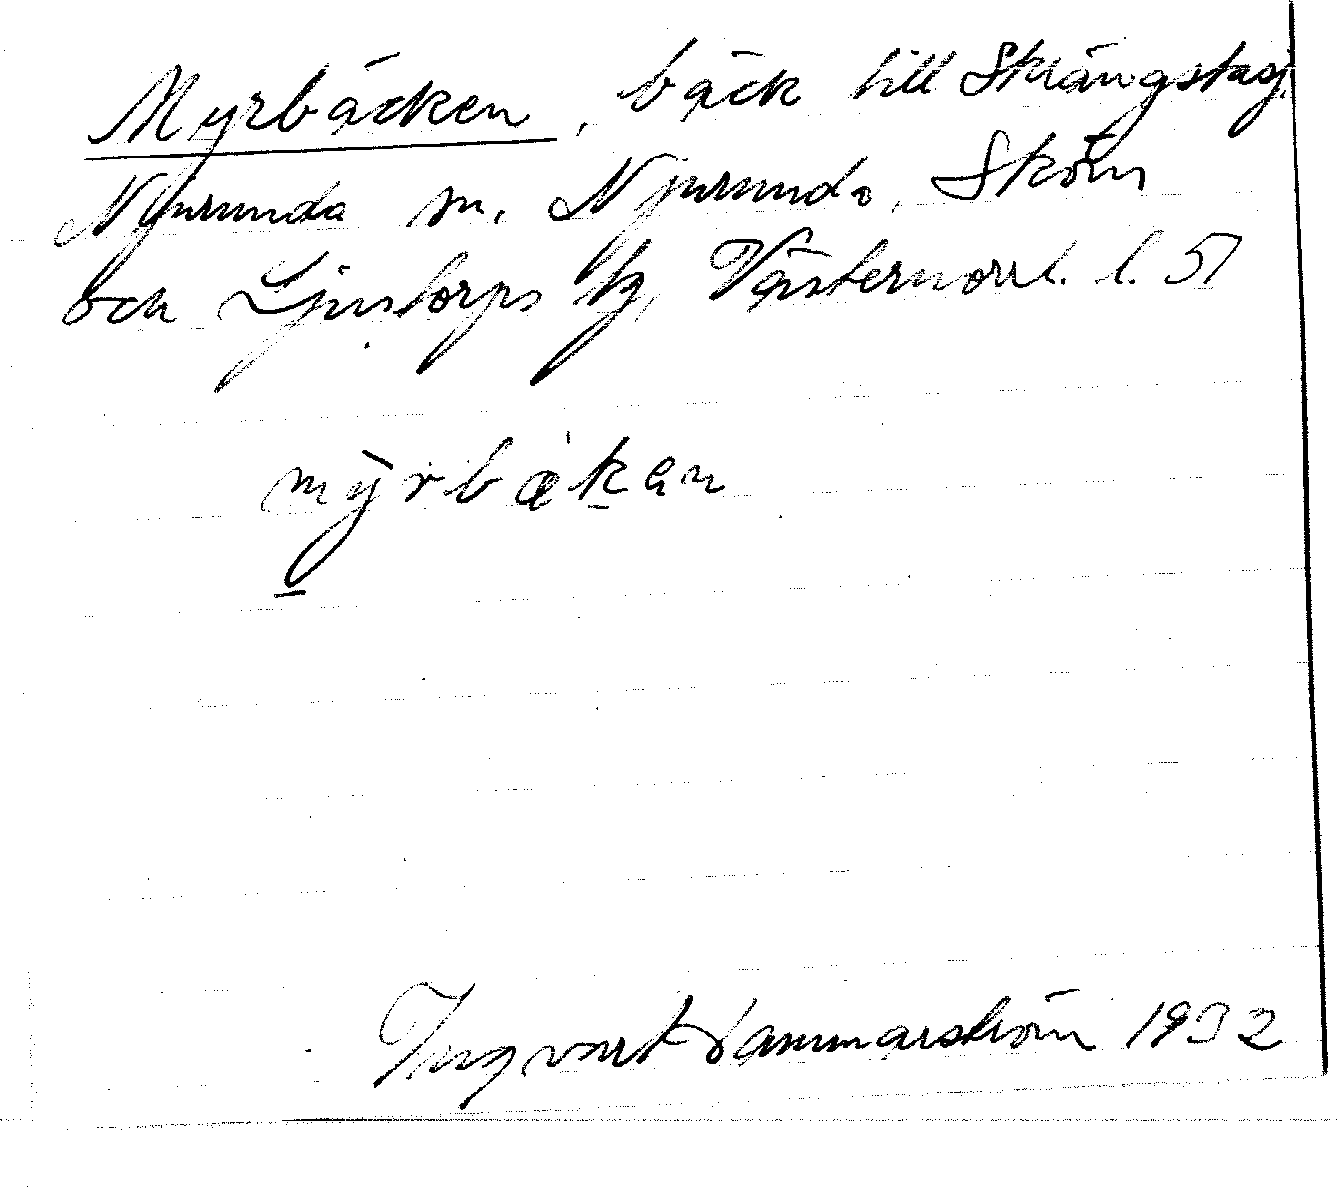 Myrbäcken, bäck till Skrängstasj.
Njurunda sn, Njurunda, Sköns
och Ljustorps tg, Västernorrl. l. 51
mỳrbækan
Ingvart Hammarström 1932